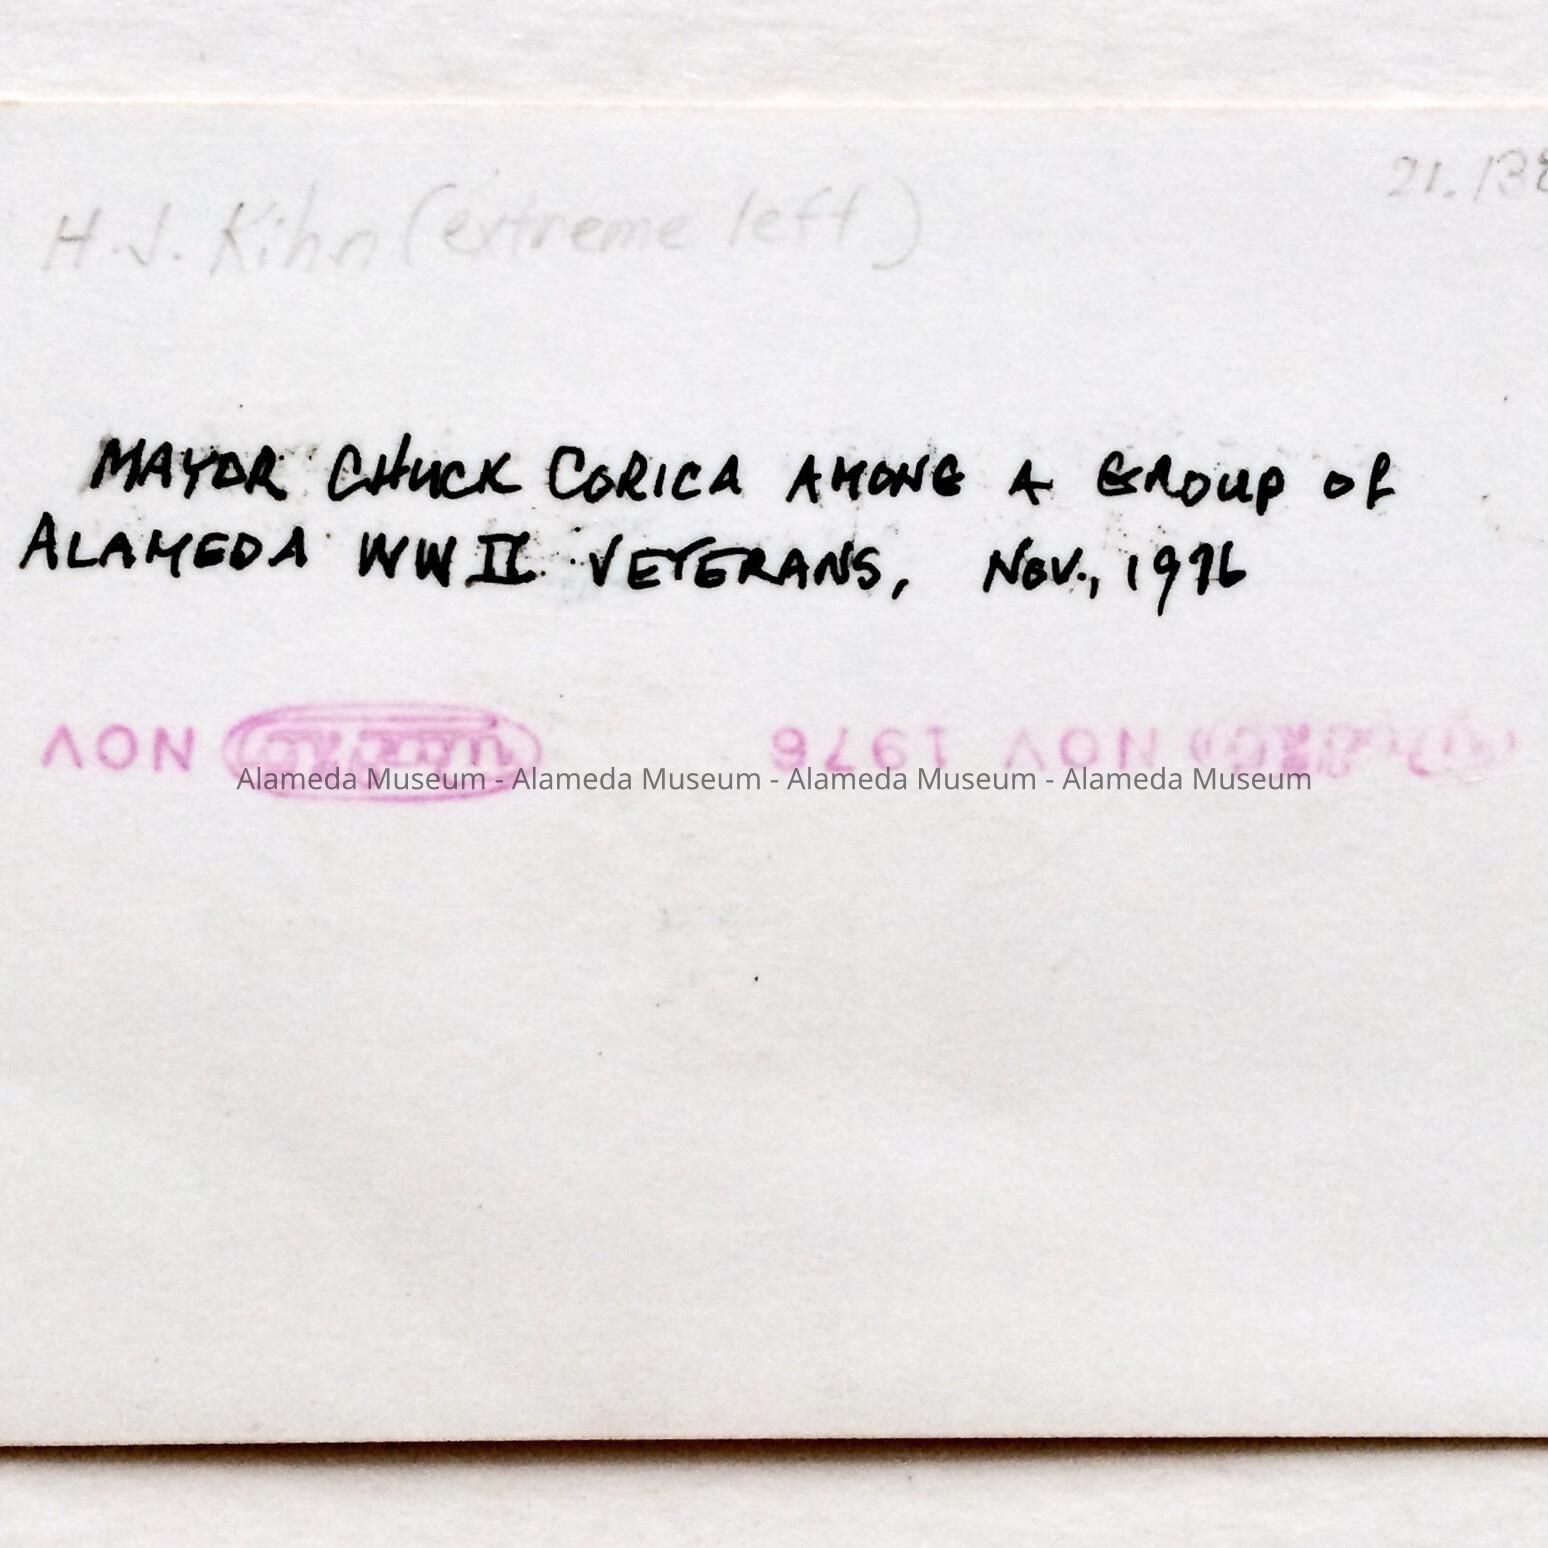 21.138
H.J. Kihn (extreme left)
MAYOR CHUCK CORICA AMONG A GROUP OF
ALAMEDA WWII VETERANS, NOV., 1976
NOV 1976 NOV
Alameda Museum - Alameda Museum - Alameda Museum - Alameda Museum